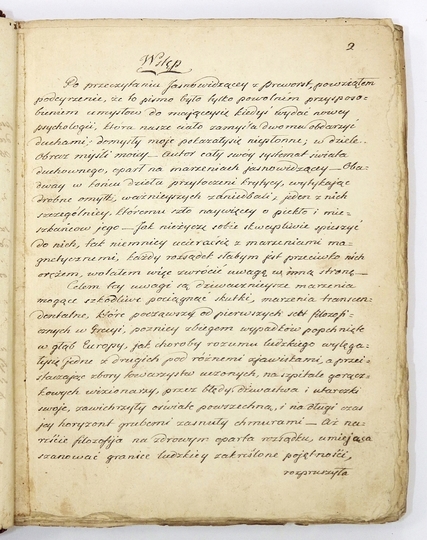 2
Wstęp
Po przeczytaniu Jasnowidzącey z Prevorst, powziąłem
podeyrzenie, że to pismo było tylko powolnem przysposo-
bieniem umysłów do mającey się kiedyś wydać nowey
psychologii, która nasze ciało zamyśla dwoma obdarzyć
duchami; domysły moje pokazały się niepłonne; w dziele
obrcz myśli mowy — autor cały swóy systemat świata
duchownego, oparł na marzeniach jasnowidzącey — Oba-
dway w końcu dzieła przytoczeni krytycy, wytykając
drobne omyłki, ważnieyszych zaniedbali, jeden z nich
szczególniey, któremu szło naywięcey o piekło i mie-
szkańcow jego — Jak nieżyczę sobie skwapliwie spieszyć
do nich, tak niemniey ucierać się z marzeniami ma-
gnetycznemi, każdy rozsądek słabym jest przeciwko nich
orężem, wolałem więc zwrócić uwagę w inną stronę —
Celem tey uwagi są dziwacznieysze marzenia
mogące szkodliwe pociągnąć skutki, marzenia transcen-
dentalne, które począwszy od pierwszych sekt filozofi-
cznych w Grecyi, pozniey zbiegem wypadków popchnięte
w głąb Europy, jak choroby rozumu ludzkiego wylęga-
ły się jedne z drugich pod różnemi zjawistami, a prze-
istaczając zbory towarzystw uczonych, na szpitale gorącz-
kowych wizionarzy, przez błędy, dziwactwa i utarczki
swoje, zawichrzyły oświatę powszechną, i na długi czas
jey horyzont grubemi zasnuły chmurami — Aż na-
reście filozofija na zdrowym oparta rozsądku, umiejąca
szanować granice ludzkiey zakreślone pojętności,
rozpruszyła